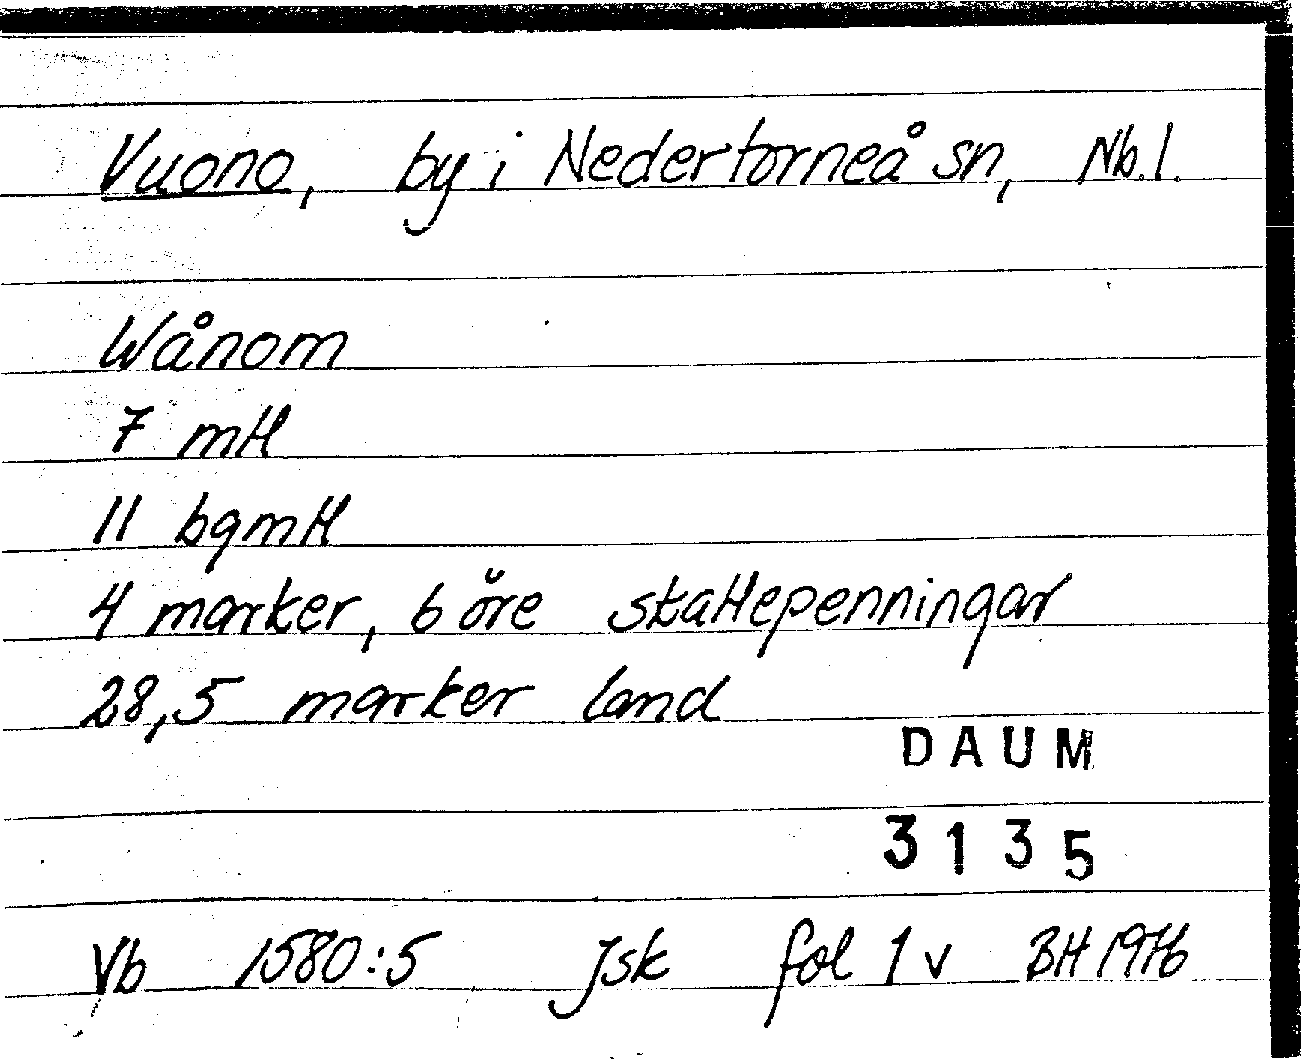 Vuono, by i Nedertorneå sn, Nb.l.
Wånom
7 mtl
11 bgmtl
4 marker, 6 öre skattepenningar
28,5 marker land
DAUM
3135
Vb 1580:5 Jsk fol 1 v BH 1976